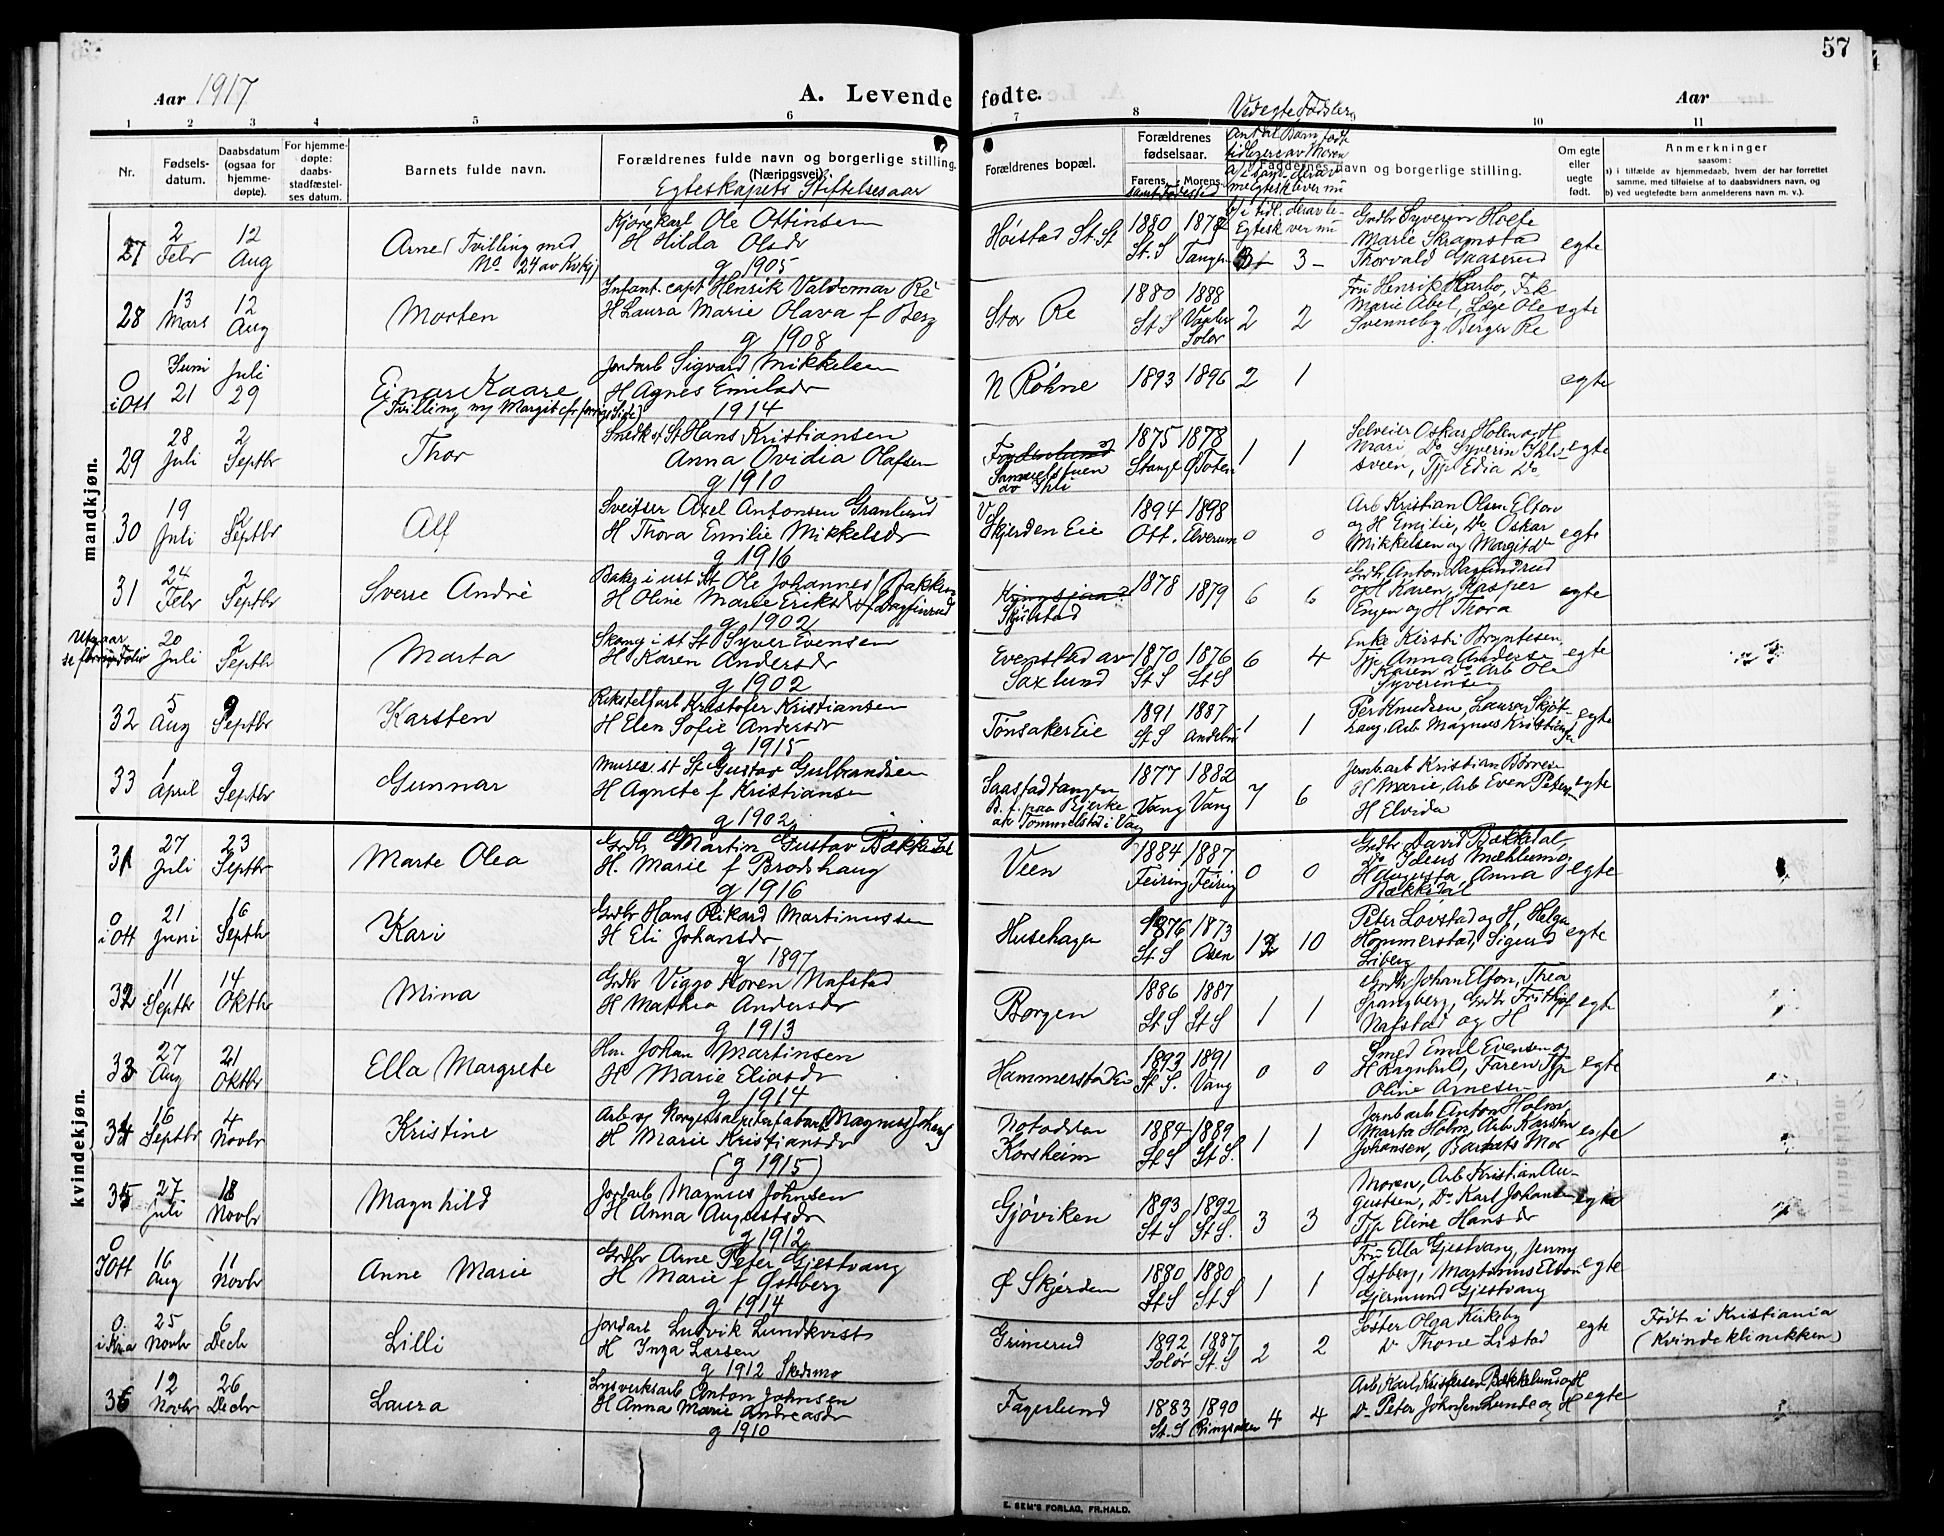 57
Aar 1917
A. Levende fødte.
Aar
1 2 3 4 5 6 7 8 10 11
Nr.
Fødsels-datum.
Daabsdatum (ogsaa for hjemme-døpte).
For hjemme-døpte: daabs-stadfæstel-ses datum.
Barnets fulde navn.
Forældrenes fulde navn og borgerlige stilling. (Næringsvei).
Egteskapets Stiftelsesaar
Forældrenes bopæl.
Forældrenes fødselsaar.
Farens. Morens.
samt Fødested
Faddernes navn og borgerlige stilling.
Om egte eller uegte født.
Anmerkninger
saasom:
a) i tilfælde av hjemmedaab, hvem der har forrettet samme, med tilføielse af to daabsvidners navn, og
b) ved uegtefødte børn anmelderens navn m. v.).
Vedegte Fødsler
Antal Barn født tidligere av Moren
mandkjøn.
27 2 Febr 12 Aug Arne (Tvilling med No 24 av Kvkj) Kjørekarl Ole Ottinsen H Hilda Olsdr g 1905 Høistad St. St 1880 St. S 1878 Tangen 3 Grdbr Syverin Hoel Marie Skramstad Thorvald Gaaserud egte
28 13 Mars 12 Aug Morten Infant. capt Henrik Valdemar Re H Laura Marie Olava f Berg g 1908 Stor Re 1880 St S 1888 Solør 2 2 Fru Henrik Harbo, Frk Marie Abel, Læge Ole Svenneby, Berger Re egte
0 i Ott Juni 21 Juli 29 Einar Kaare (Tvilling m/ Margit cfr forrige Side) Jordarb Sigvard Mikkelsen H Agnes Emilsdr 1914 N Røhne 1893 1896 2 1 egte
29 28 Juli 2 Septbr Thor Snedk st St Hans Kristiansen Anna Ovidia Olafsen g 1910 Samuelstuen av Ihli 1875 Stange 1878 Ø Toten 1 1 Selveier Oskar Holm og H Mari, Do Syverin Ihlesveen, Tjp Edia Do egte
30 19 Juli 2 Septbr Alf Sveitser Axel Antonsen Granlund H Thora Emilie Mikkelsdr g 1916 V Skjerden Eie 1894 Ott. 1898 Elverum 0 0 Arb Kristian Olsen Elton og H Emilie, Do Oskar Mikkelsen og Margit Do egte
31 24 Febr 2 Septbr Sverre André Ole Johannes (Bakken) H Oline Marie Eriksdr g 1902 Skjülstad 1878 1879 6 6 Grdbr Anton Dagfindrud og H Karen, Kasper Engen og H Thora egte
Utgaar se forrige Folio 20 Juli 2 Septbr Marta Skomg i st St Syver Evensen H Karen Andersdr g 1902 Evenstad av Saxlund 1870 St S 1876 St S 6 4 Enke Kirsti Bryntesen Tjp Anna Anderse Karen Do Arb Ole Syverensen egte
32 5 Aug 9 Septbr Karsten Rikstelfarb Kristofer Kristiansen H Elen Sofie Andersdr g 1915 Tønsaker Eie 1891 St S 1887 Andebu 1 1 Per Knudsen, Laura Skjøt- haug, Arb Magnus Kristiansen egte
33 1 April 9 Septbr Gunnar Murer i st St Gustav Gulbrandsen H Agnete f Kristiansen g 1902 Saastadtangen B. f. paa Bjerke av Tommelstad i Vang 1877 Vang 1882 Vang 7 6 Jernb. arb Kristian Børresen H Marie, Arb Even Petersen H Elvida egte
kvindekjøn.
31 27 Juli 23 Septbr Marte Olea Grdbr Martin Gustav Bækkedal H. Marie f Brodshaug g 1916 Veen 1884 Feiring 1887 Feiring 0 0 Grdbr David Bækkedal, Do Ideus Mæhlum og H Augusta, Anna Bækkedal egte
0 i Ott 21 Juni 16 Septbr Kari Grdbr Hans Rikard Martinussen H Eli Johansdr g 1897 Husehagen 1876 St S 1873 Aasen 12 10 Peter Løvstad og H, Helga Hommerstad, Sigurd Liberg egte
32 11 Septbr 14 Oktbr Mina Grdbr Viggo Horen Nafstad H Mathea Andersdr g 1913 Borgen 1886 St S 1887 St S 1 1 Grdbr Johan Elton, Thea Spangberg, Grdbr Frithjof Nafstad og H egte
33 27 Aug 21 Oktbr Ella Margrete Hm Johan Martinsen H Marie Eliasdr g 1914 Hammerstad Eie 1893 St S. 1891 Vang 0 0 Smed Emil Evensen og H Ragnhild, Faren Tjp Oline Arnesen egte
34 16 Septbr 4 Novbr Kristine Arb vg Norges salpeterfabrik Magnus Johansen H Marie Kristiansdr (g 1915) Notodden Korsheim 1884 St S 1889 St S. 1 1 Jernb arb Anton Holm, Marta Holm, Arb Karsten Johansen, Barnets Mor egte
35 27 Juli 18 Novbr Magnhild Jordarb Magnus Johnsen H Anna Augustsdr g 1912 Gjøviken 1893 St S 1892 St S. 3 3 Moren, Arb Kristian Au-gustsen, Do Karl Johansen Tjp Eline Hansdr egte
0 I Ott 16 Aug 11 Novbr Anne Marie Grdbr Arne Peter Gjestvang H Marie f Østberg g 1914 Ø Skjerden 1880 St S 1880 St S 1 1 Fru Ella Gjestvang, Jenny Østberg, Martinius Elton Gjermund Gjestvang egte
0. i Kria 25 Novbr 6 Decbr Lilli Jordarb Ludvik Lundkvist H Inga Larsen g 1912 Skedsmo Grimerud 1892 Solør 1887 St. S 2 2 Søster Olga Kirkeby Do Thone Listad egte Født i Kristiania (Kvindeklinikken)
36 12 Novbr 26 Decbr Laura Lysverksarb Anton Johnsen H Anna Marie Andreasdr g 1910 Fagerlund 1883 St. S 1890 Ringsaker 4 4 Arb Karl Kristiansen Bækkelund og H Do Peter Johnsen Lunde og H egte
E. SEM'S FORLAG, FR.HALD.